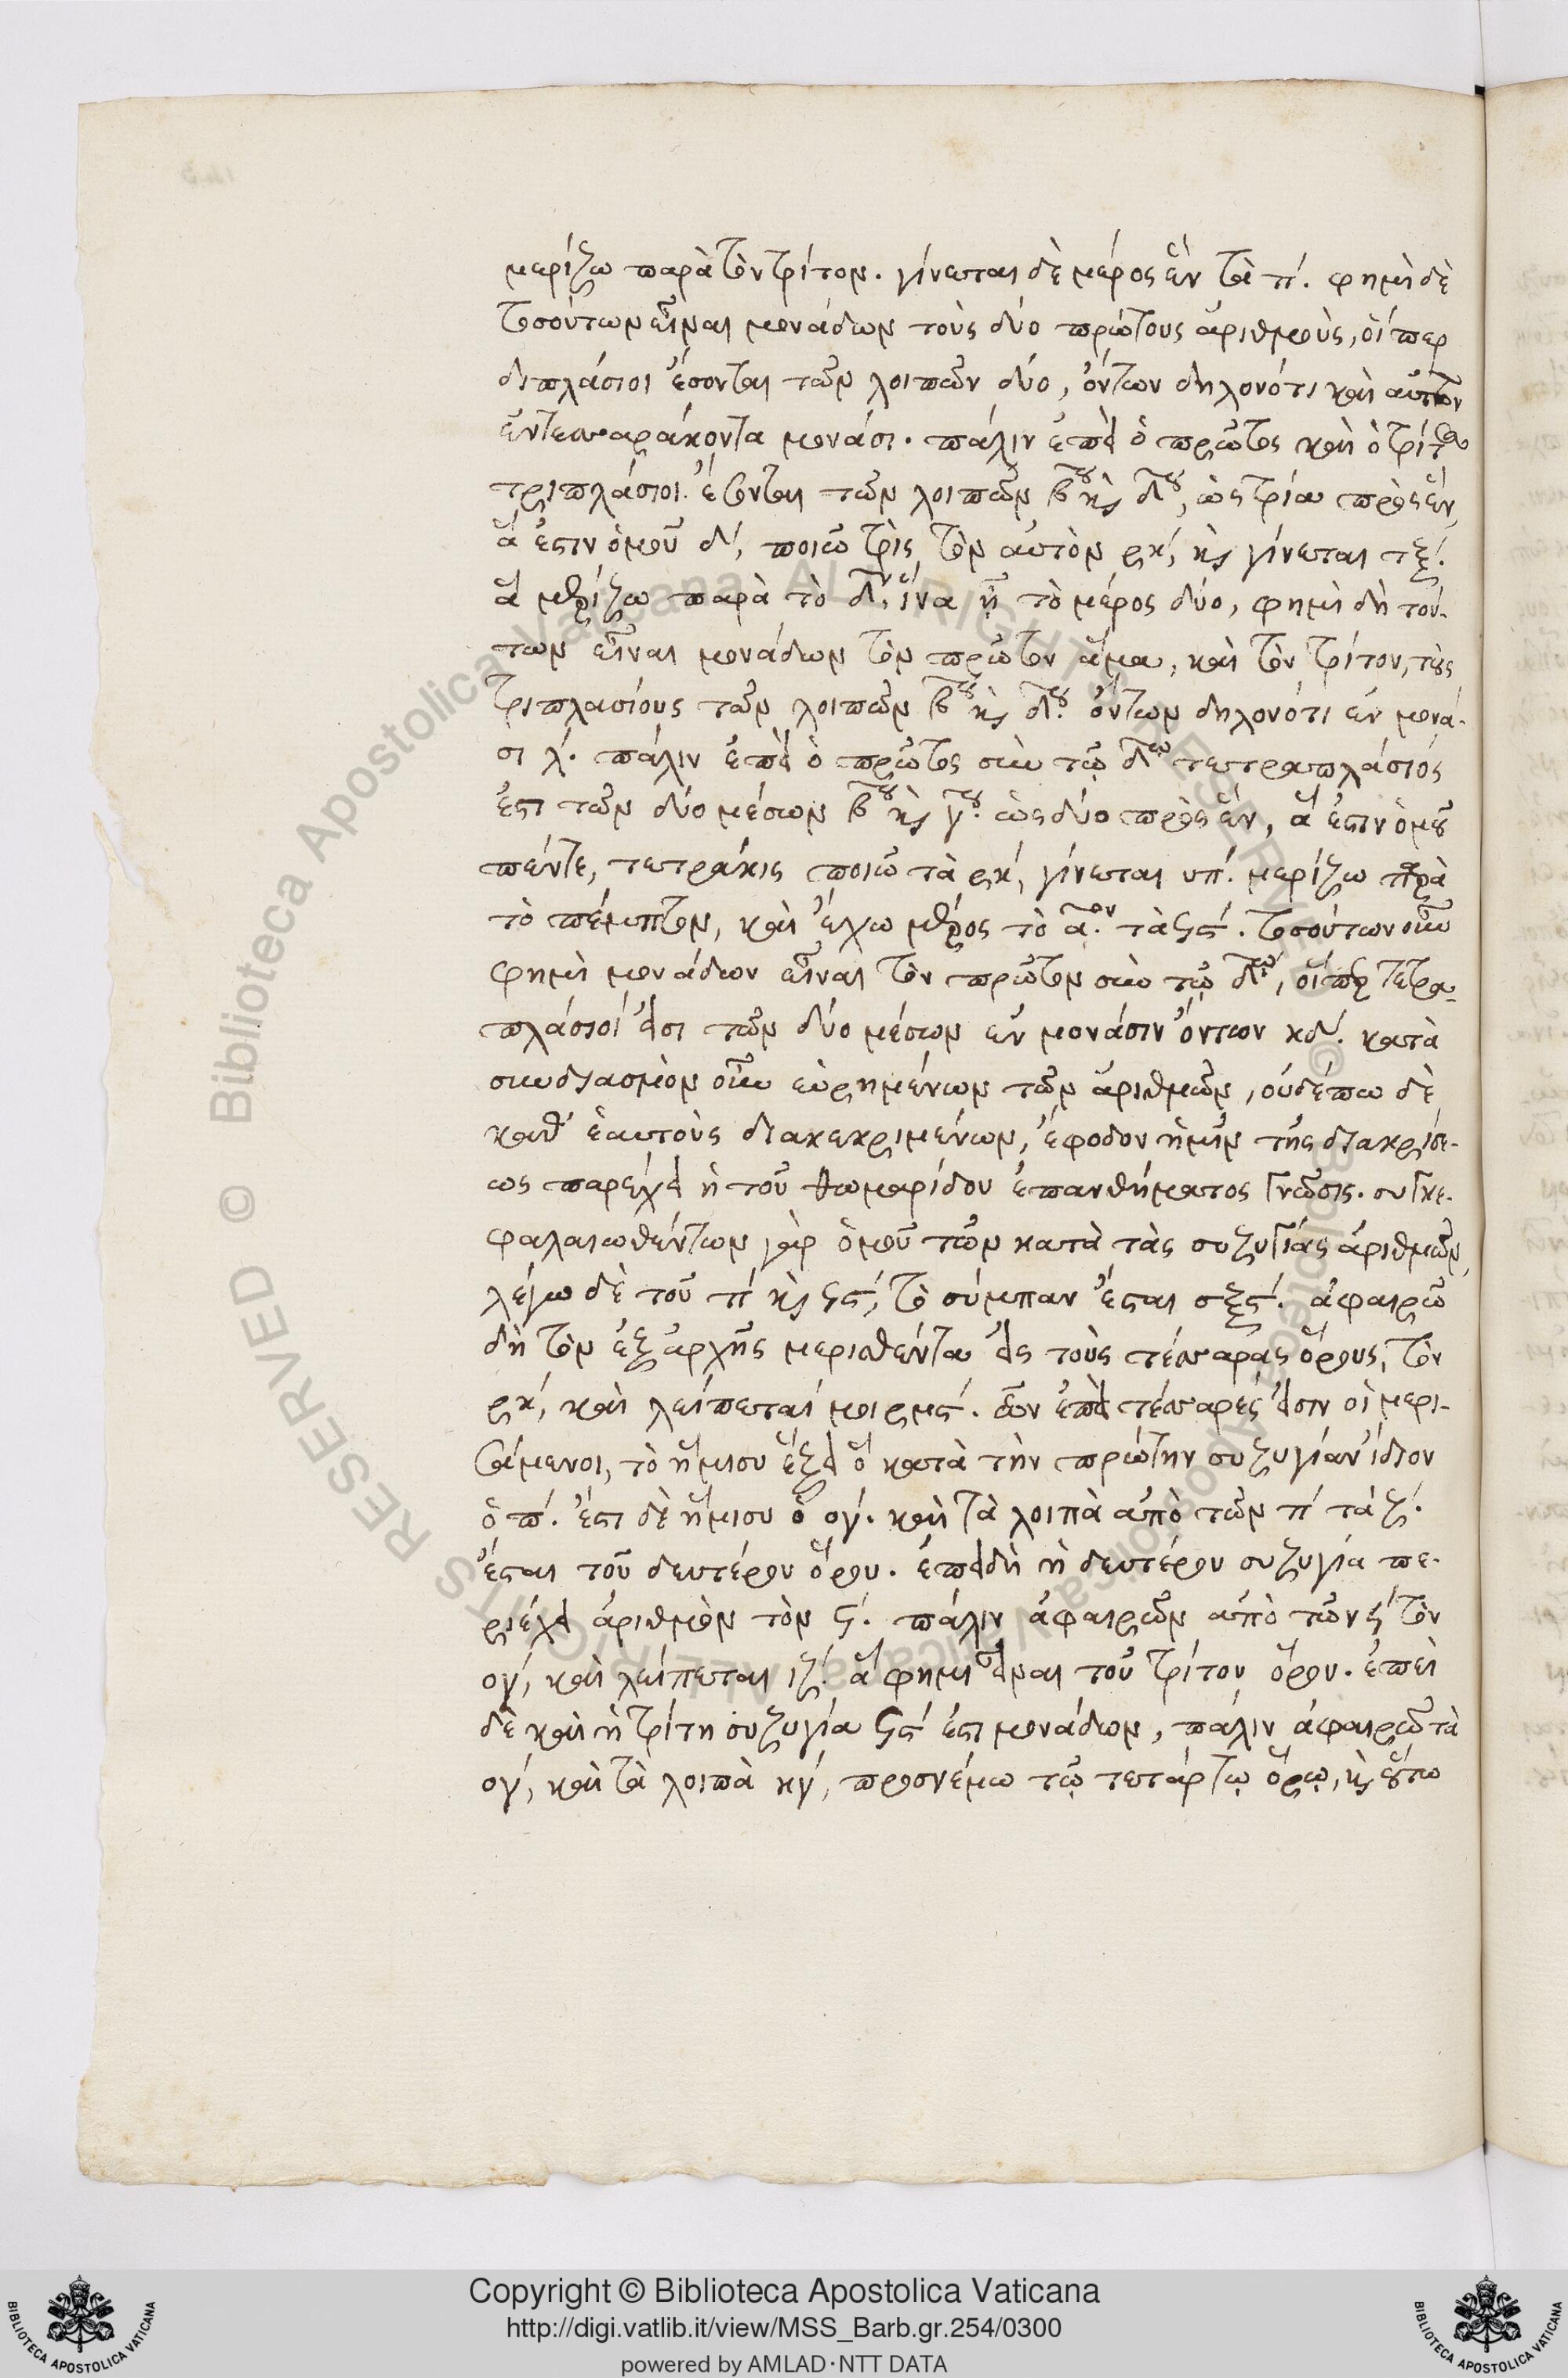 μερίζω παρὰ τὸν τρίτον. γίνεται δὲ μέρος ἓν τὰ π΄. φημὶ δὲ
τοσούτων εἶναι μονάδων τοὺς δύο πρώτους ἀριθμοὺς, οἵ περ
διπλάσιοι ἔσονται τῶν λοιπῶν δύο, ὄντων δηλονότι καὶ αὐτῶν
ἐν τεσσαράκοντα μονάσι. πάλιν ἐπεὶ ὁ πρῶτος καὶ ὁ τρίτος
τριπλάσιοι ἔσονται τῶν λοιπῶν β^ου κ̀ς δ^ου, ὡς τρία πρὸς ἓν,
ἅ ἐστιν ὁμοῦ δ΄, ποιῶ τρὶς τὸν αὐτὸν ρκ΄, κ̀ς γίνεται τξ΄.
ἃ μερίζω παρὰ τὸ δ^ον, ἵνα ᾖ τὸ μέρος δύο, φημὶ δὴ τού-
των εἶναι μονάδων τὸν πρῶτον ἅμα, καὶ τὸν τρίτον, τοὺς
τριπλασίους τῶν λοιπῶν β^ου κ̀ς δ^ου. ὄντων δηλονότι ἐν μονά-
σι λ΄. πάλιν ἐπεὶ ὁ πρῶτος σὺν τῷ δ^ῳ τετραπλάσιός
ἐστι τῶν δύο μέσων β^ου κ̀ς γ^ου. ὡς δύο πρὸς ἓν, ἅ ἐστιν ὁμοῦ
πέντε, τετράκις ποιῶ τὰ ρκ΄, γίνεται υπ΄. μερίζω παρὰ
τὸ πέμπτον, καὶ ἔχω μέρος τὸ α^ον. τὰ ϟϛ΄. τοσούτων οὖν
φημὶ μονάδων εἶναι τὸν πρῶτον σὺν τῷ δ^ῳ, οἵπερ τετρα-
πλάσιοί εἰσι τῶν δύο μέσων ἐν μονάσιν ὄντων κδ΄. κατὰ
συνδιασμὸν οὖν εὑρημένων τῶν ἀριθμῶν, οὐδέπω δὲ
καθ' ἑαυτοὺς διακεκριμένων, ἔφοδον ἡμῖν τῆς διακρίσε-
ως παρέχει ἡ τοῦ θωμαρίδου ἐπανθήματος γνῶσις. συγκε-
φαλαιωθέντων γὰρ ὁμοῦ τῶν κατὰ τὰς συζυγίας ἀριθμῶν,
λέγω δὲ τοῦ π΄ κ̀ς ϟϛ΄, τὸ σύμπαν ἔσται σξϛ΄. ἀφαιρῶ
δὴ τὸν ἐξ ἀρχῆς μερισθέντα εἰς τοὺς τέσσαρας ὅρους, τὸν
ρκ΄, καὶ λείπεταί μοι ρμϛ΄. ὧν ἐπεὶ τέσσαρές εἰσιν οἱ μερι-
σάμενοι, τὸ ἥμισυ ἕξει ὁ κατὰ τὴν πρώτην συζυγίαν ἴδιον
ὁ π΄. ἔστι δὲ ἥμισυ ὁ ογ΄. καὶ τὰ λοιπὰ ἀπὸ τῶν π΄ τὰ ζ΄.
ἔσται τοῦ δευτέρου ὅρου. ἐπειδὴ ἡ δευτέρου συζυγία πε-
ριέχει ἀριθμὸν τὸν ϟ΄. πάλιν ἀφαιρῶν ἀπὸ τῶν ϟ΄ τὸν
ογ΄, καὶ λείπεται ιζ΄. ἅ φημι εἶναι τοῦ τρίτου ὅρου. ἐπεὶ
δὲ καὶ ἡ τρίτη συζυγία ϟϛ΄ ἐστι μονάδων, πάλιν ἀφαιρῶ τὰ
ογ΄, καὶ τὰ λοιπὰ κγ΄, προσνέμω τῷ τετάρτῳ ὅρῳ, κ̀ς οὕτω
© Biblioteca Apostolica Vaticana ALL RIGHTS RESERVED
© Biblioteca Apostolica Vaticana ALL RIGHTS RESERVED
Copyright © Biblioteca Apostolica Vaticana
http://digi.vatlib.it/view/MSS_Barb.gr.254/0300
powered by AMLAD·NTT DATA
BIBLIOTECA APOSTOLICA VATICANA
BIBLIOTECA APOSTOLICA VATICANA